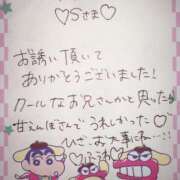 ♡Sさま♡
お誘い頂いて
ありがとうございました!
クールなお兄さんかと思ったら
甘えんぼさんでうれしかった♡
ひざ、お大事にね…!!